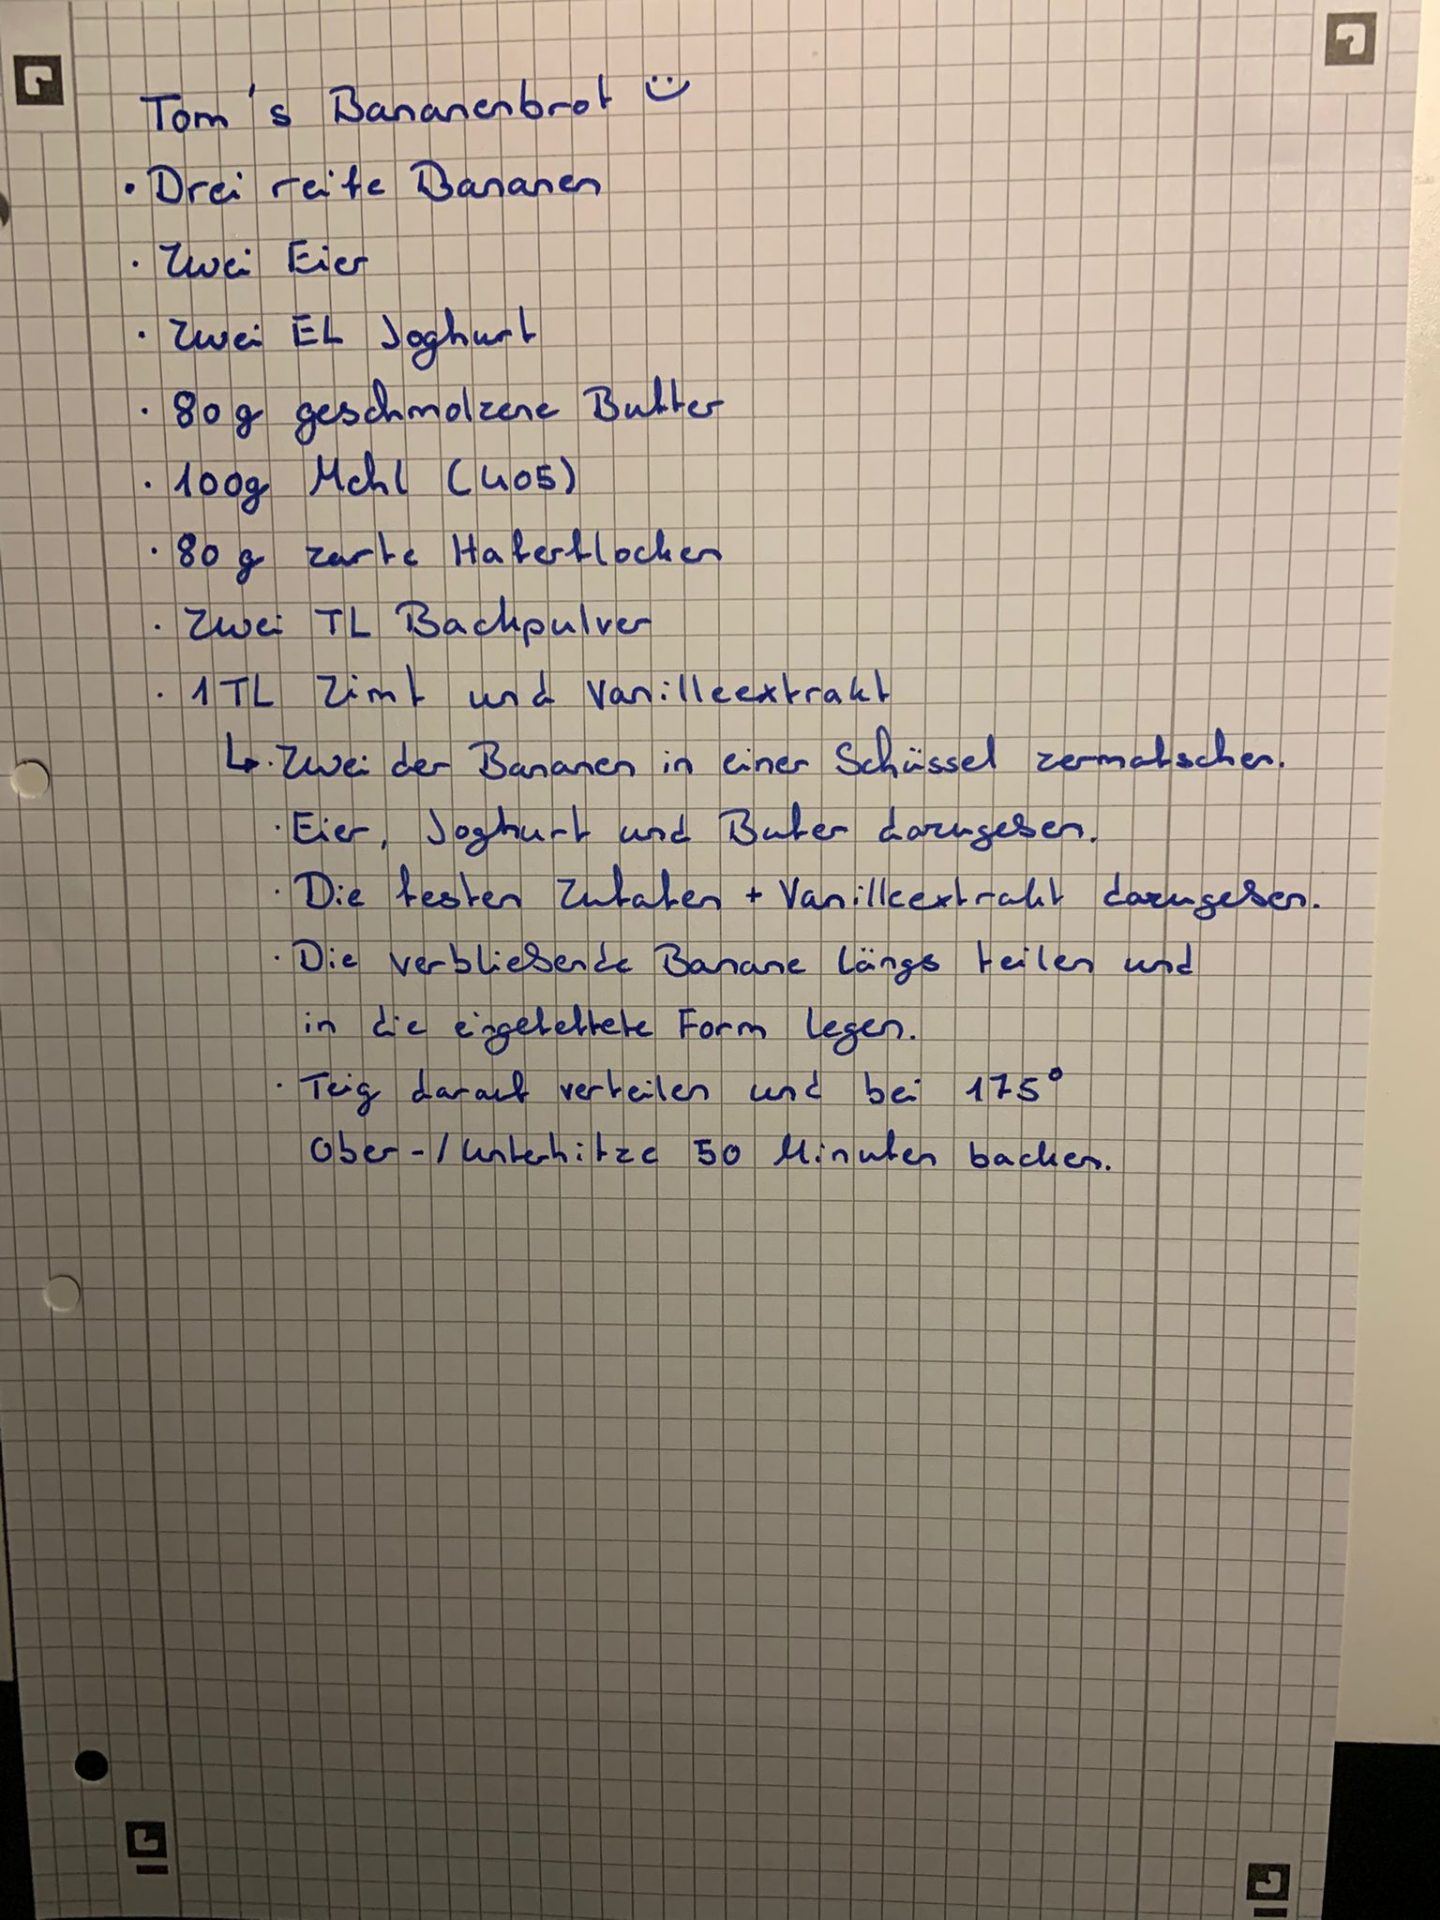 Tom's Bananenbrot :)
• Drei reife Bananen
• Zwei Eier
• Zwei EL Joghurt
• 80g geschmolzene Butter
• 100g Mehl (405)
• 80g zarte Haferflocken
• Zwei TL Backpulver
• 1TL Zimt und Vanilleextrakt
↳ • Zwei der Bananen in einer Schüssel zermatschen.
• Eier, Joghurt und Buter dazugeben.
• Die festen Zutaten + Vanilleextrakt dazugeben.
• Die verbliebende Banane längs teilen und
in die eingefettete Form legen.
• Teig darauf verteilen und bei 175°
Ober-/Unterhitze 50 Minuten backen.